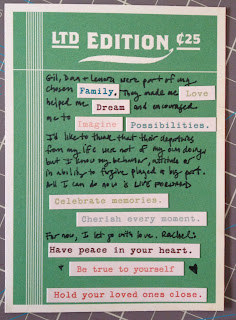 LTD EDITION ¢25
Gil, Dan & Lenora were part of my
chosen Family. They made me Love
helped me Dream and encouraged
me to Imagine Possibilities.
I'd like to think that their departures
from my life were not of my own doing
but I know my behavior, attitude or
inability to forgive played a big part.
All I can do now is LIVE FORWARD
Celebrate memories.
Cherish every moment.
For now, I let go with love. Rachel
Have peace in your heart.
+ Be true to yourself
Hold your loved ones close.